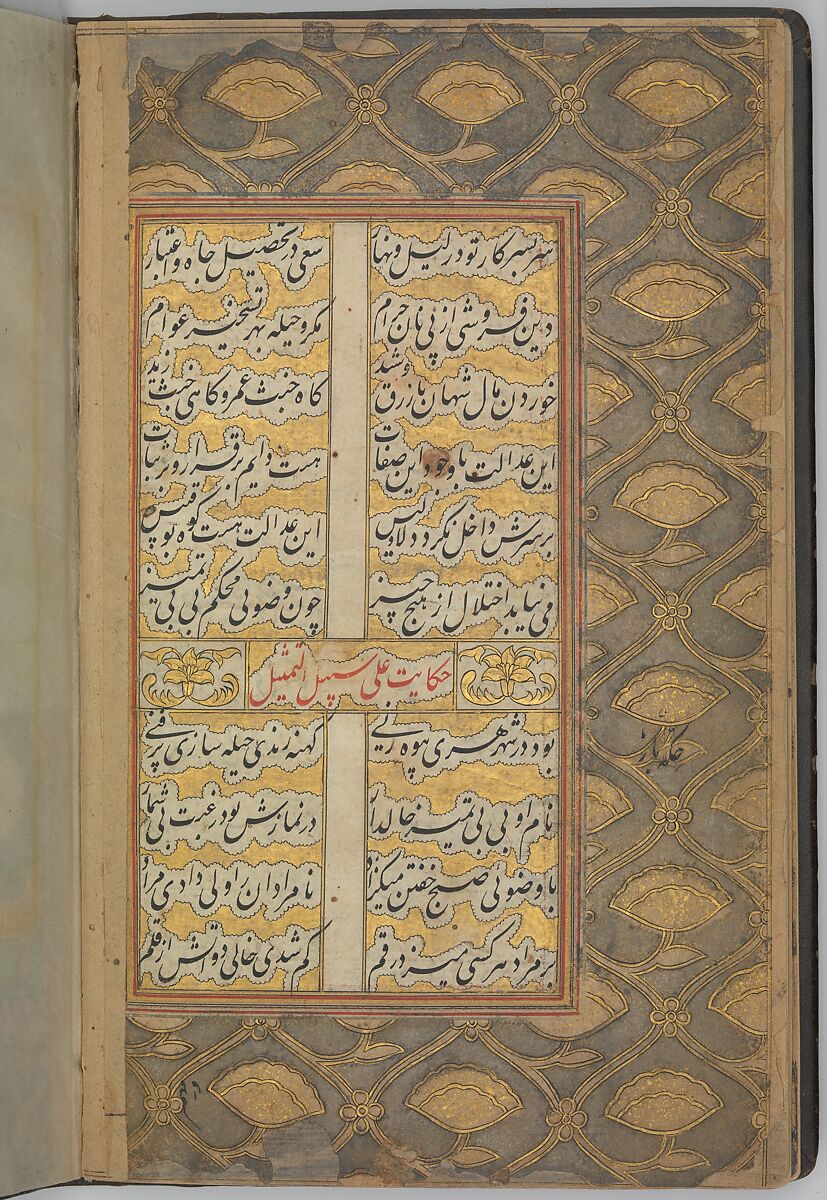 سر بسر کار تو در لیل و نهار سعی در تحصیل جاه و اعتبار
دین فروشی از پی نان حرام مکر و حیله بهر تسخیر عوام
خوردن مال شهان با زرق و شید کاه خبث عمرو و کاهی خبث زید
این عدالت با وجود این صفات هست دایم برقرار و بر ثبات
بر سرش داخل نکردد لا و لیس این عدالت هست کوه بو قبیس
می نیابد اختلال از هیچ چیز چون وضوی محکم بی بی تمیز
حکایت علی سبیل التمثیل
بود در شهر هری بیوه زنی کهنه رندی حیله سازی پر فنی
نام او بی بی تمیز خالدار در نمازش بود رغبت بی شمار
با وضوی صبح خفتن میکزارد نامرادان را ولی دادی مراد
بر مراد هر کسی میزد رقم کم شدی خالی دواتش از قلم